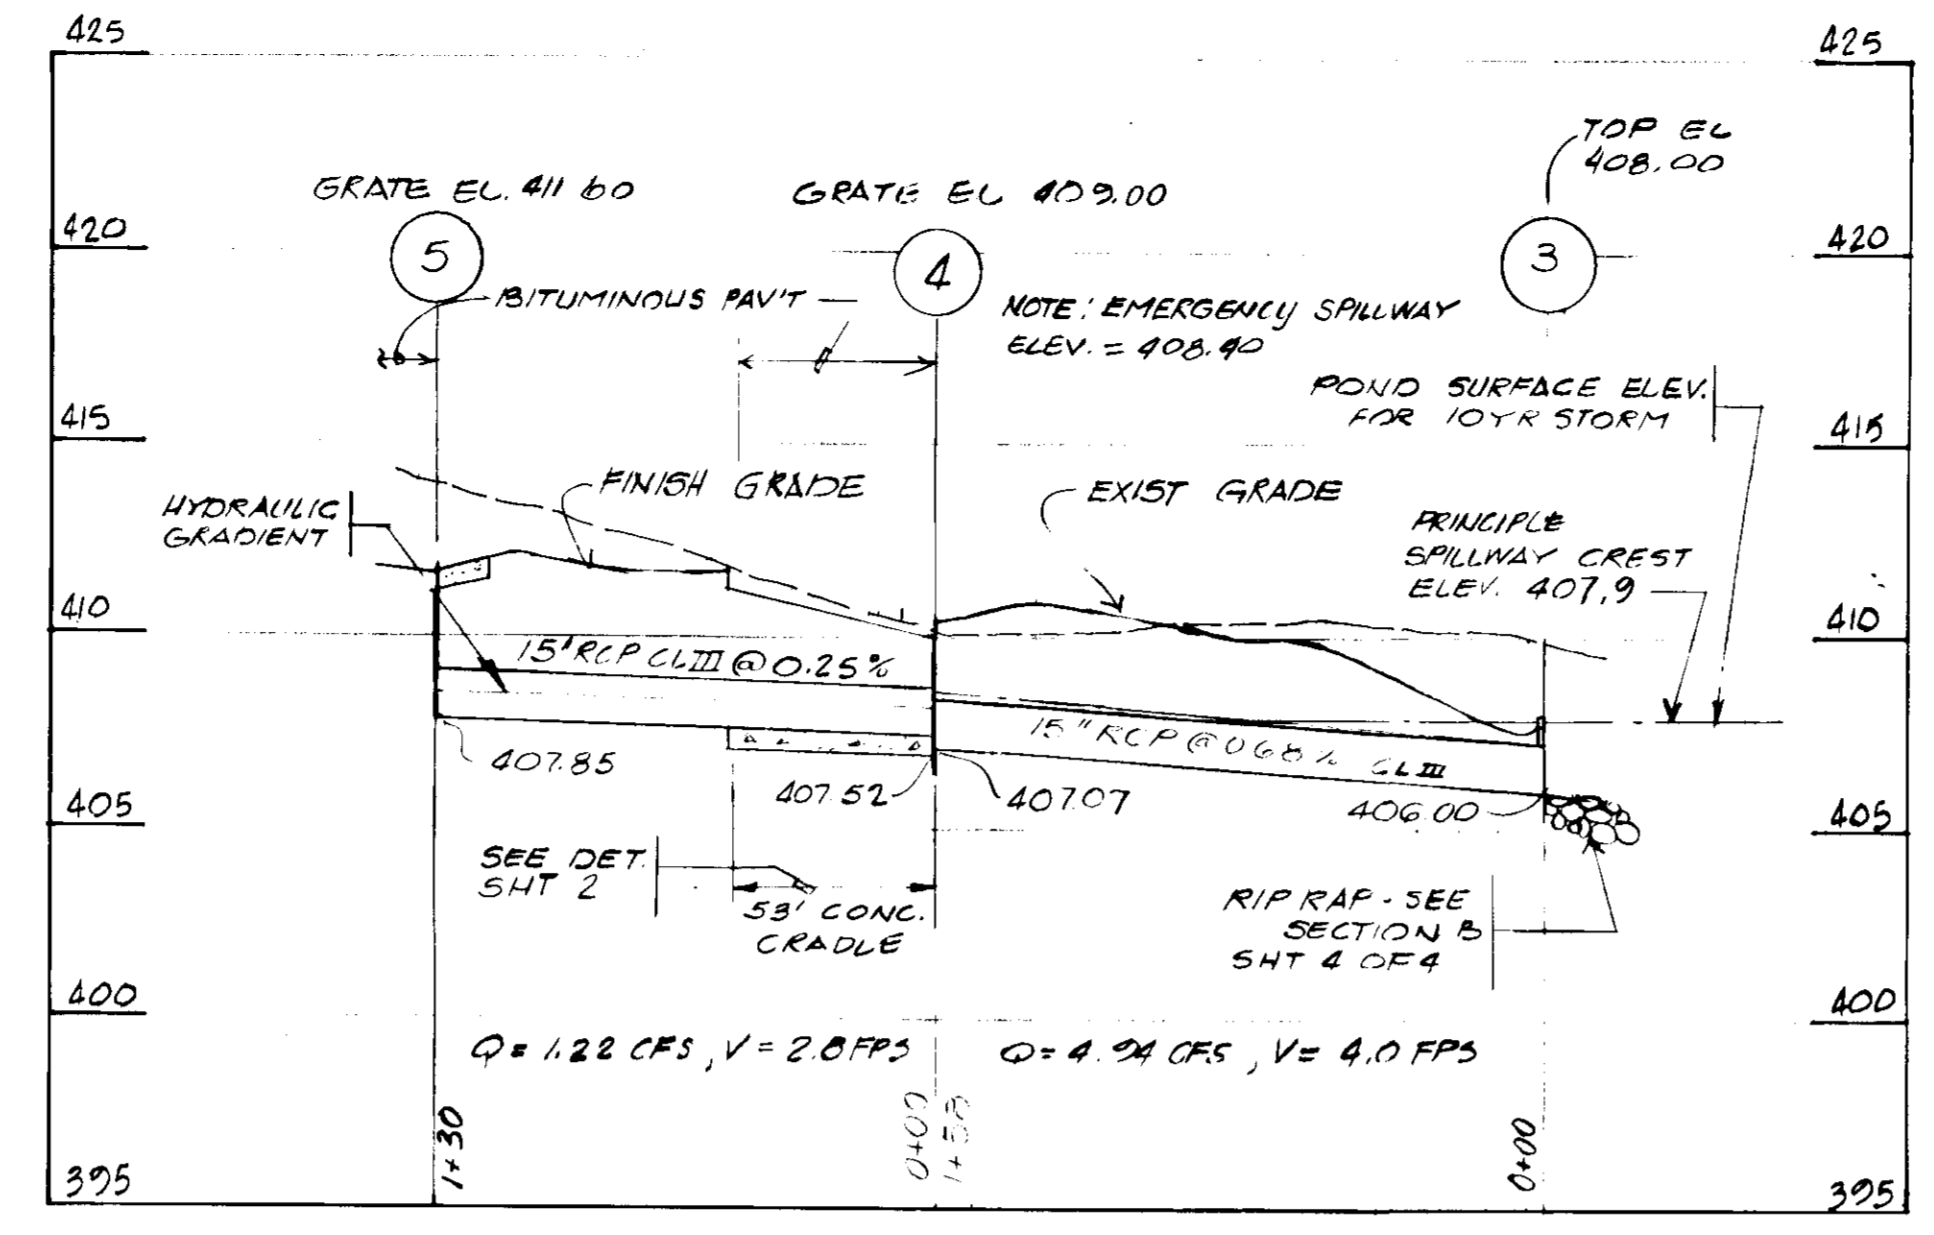 425
425
TOP EL
408.00
GRATE EL. 411 60
GRATE EL 409.00
420
5
4
3
420
BITUMINOUS PAV'T
NOTE: EMERGENCY SPILLWAY
ELEV. = 408.40
POND SURFACE ELEV.
FOR 10YR STORM
415
415
FINISH GRADE
EXIST GRADE
HYDRAULIC
GRADIENT
PRINCIPLE
SPILLWAY CREST
ELEV. 407.9
410
410
15" RCP CL III @ 0.25%
15" RCP @ 0.68% CL III
407.85
407.52
407.07
406.00
405
405
SEE DET.
SHT 2
53' CONC.
CRADLE
RIP RAP - SEE
SECTION B
SHT 4 OF 4
400
400
Q = 1.22 CFS, V = 2.8 FPS
Q = 4.94 CFS, V = 4.0 FPS
1+30
0+00
1+58
0+00
395
395